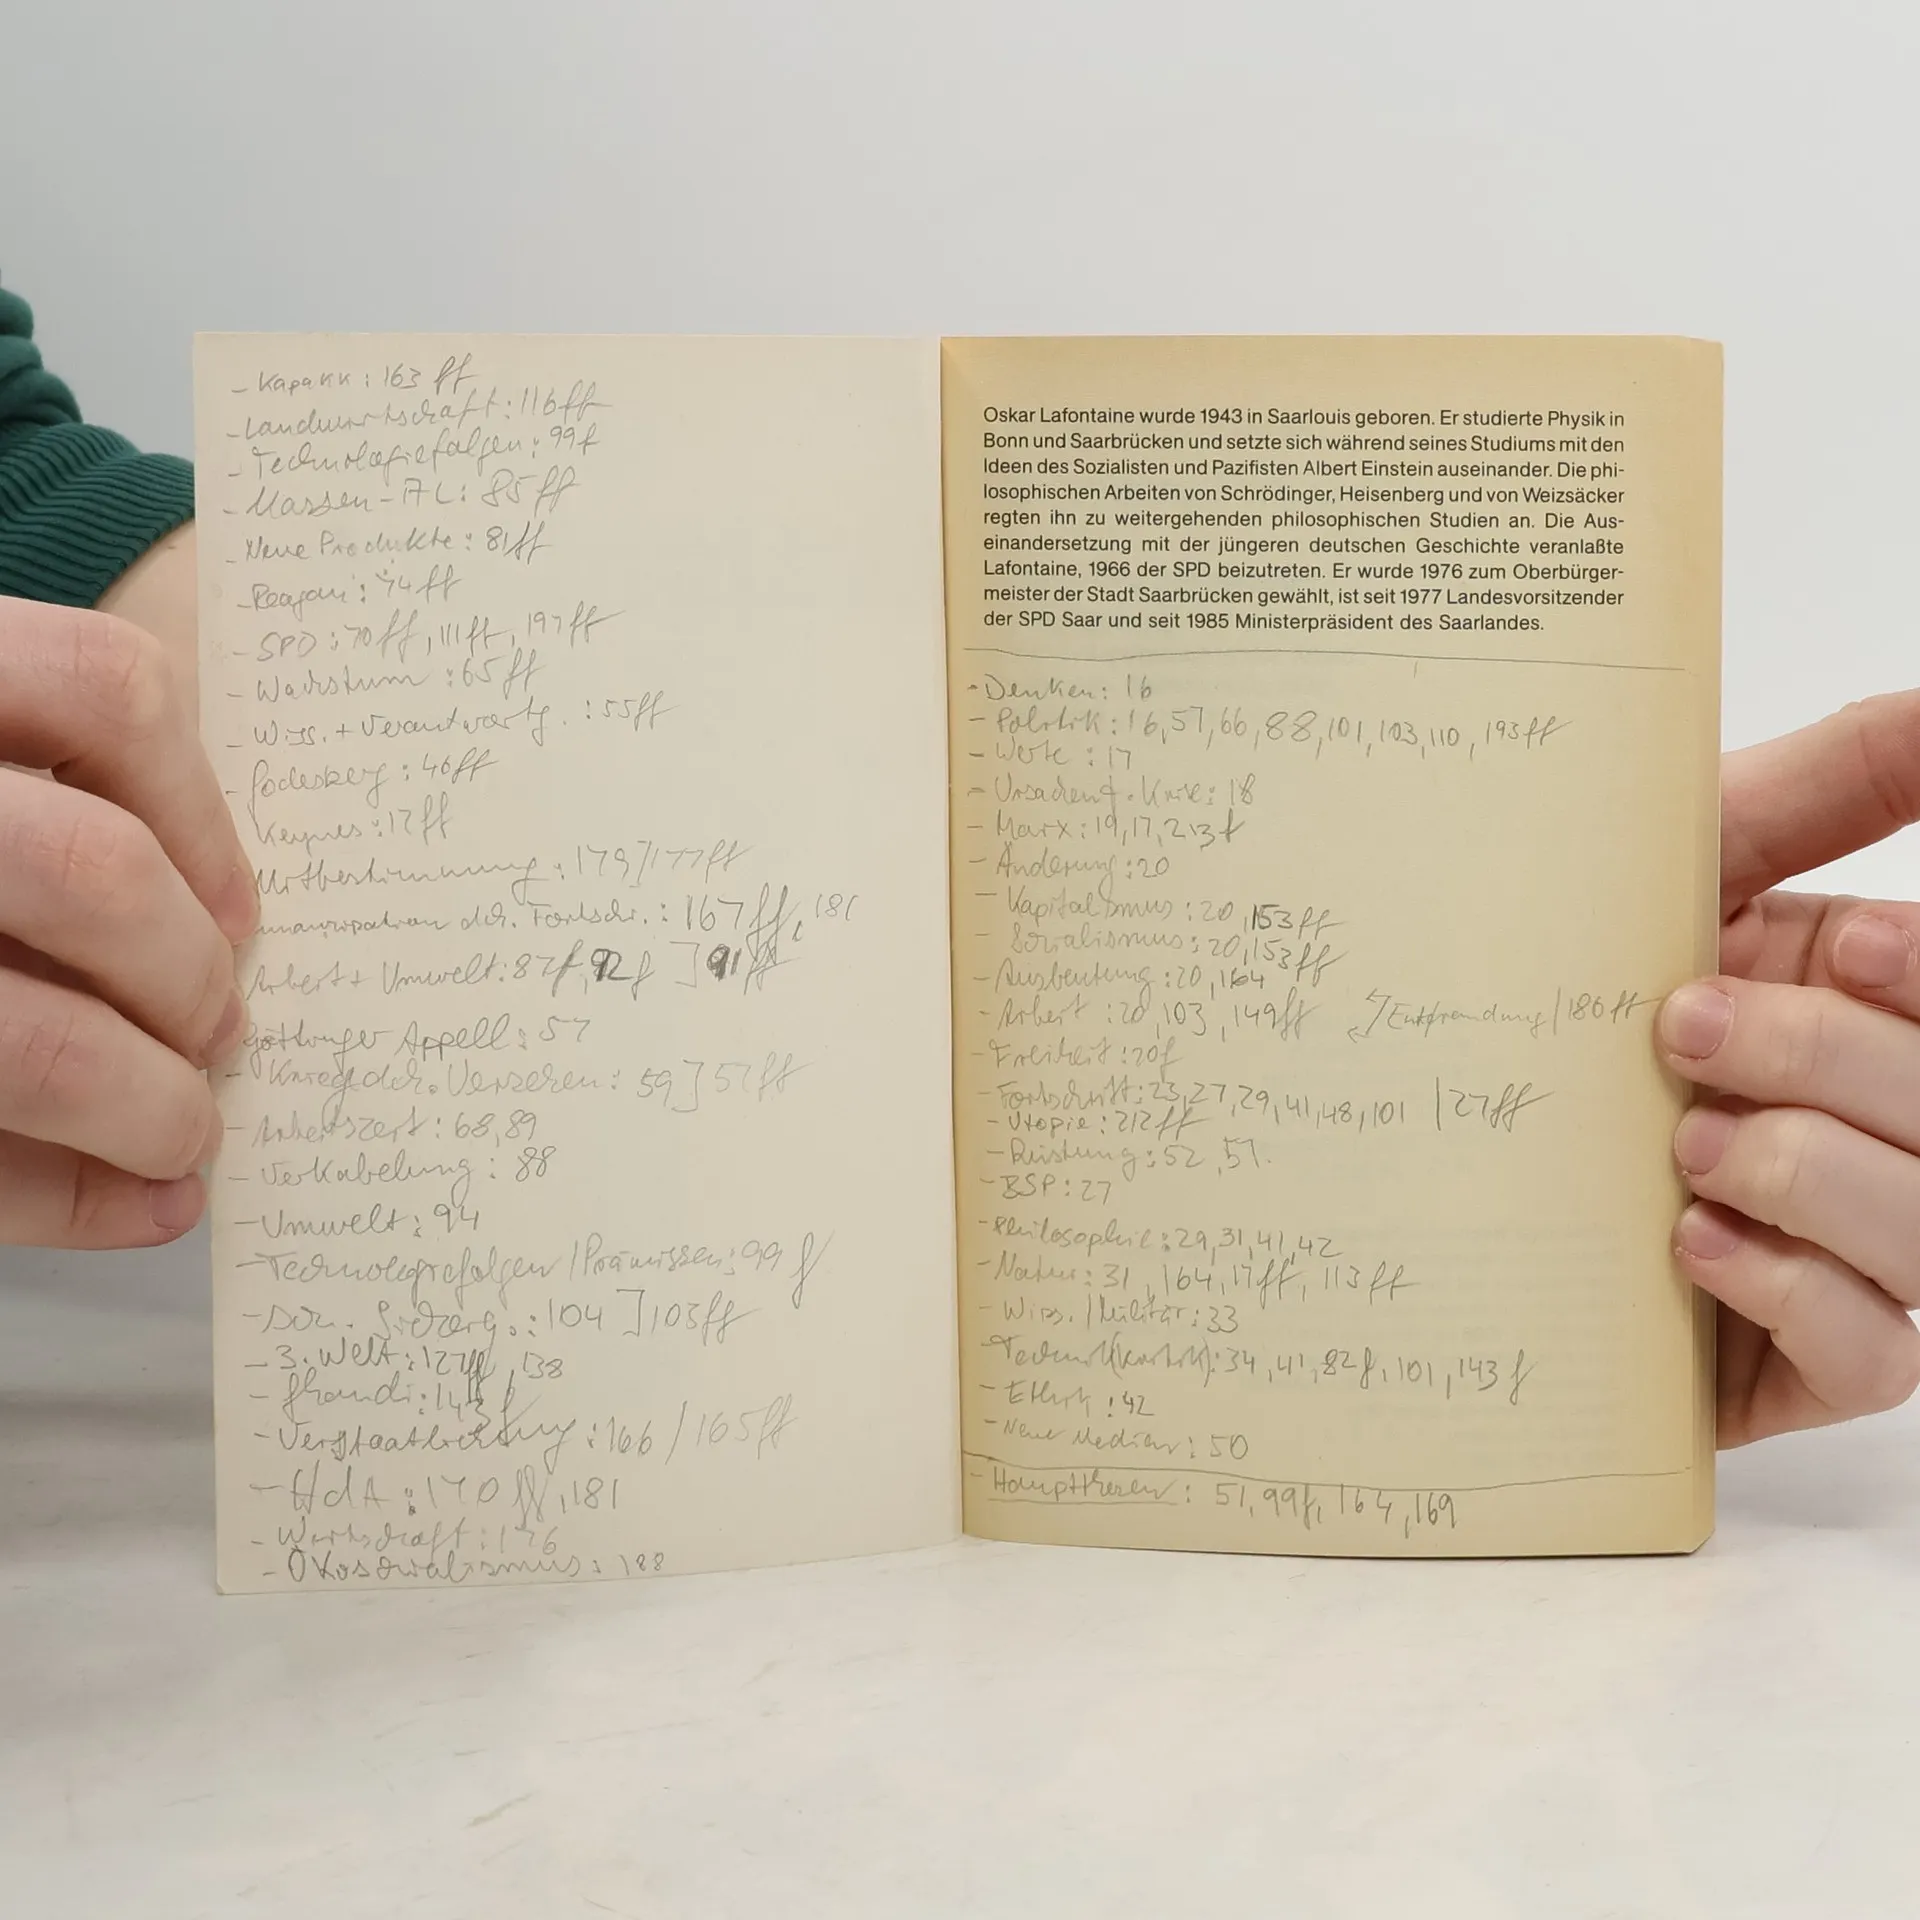 - Kapakk : 163 ff
- Landwirtschaft : 116ff
- Technologiefolgen : 99f
- Massen-AL : 85ff
- Neue Produkte : 81ff
- Reagan : 74ff
- SPD : 70ff, 111ff, 197ff
- Wachstum : 65ff
- Wiss. + Verantwortg. : 55ff
- Godesberg : 46ff
Keynes : 17ff
Mitbestimmung : 179]177ff
dch. Fortschr. : 167ff, 181
Arbeit + Umwelt : 87f, 92f ] 91ff
Göttinger Appell : 57
- Krieg dch. Versehen : 59] 57ff
- Arbeitszeit : 68, 89
- Verkabelung : 88
- Umwelt : 94
- Technologiefolgen / Prämissen : 99f
- Soz. : 104 ] 103ff
- 3. Welt : 127ff, 138
- Ghandi : 143f
- Verstaatlichung : 166 / 165ff
- HdA : 170ff, 181
- Wirtschaft : 176
- Ökosozialismus : 188
Oskar Lafontaine wurde 1943 in Saarlouis geboren. Er studierte Physik in
Bonn und Saarbrücken und setzte sich während seines Studiums mit den
Ideen des Sozialisten und Pazifisten Albert Einstein auseinander. Die phi-
losophischen Arbeiten von Schrödinger, Heisenberg und von Weizsäcker
regten ihn zu weitergehenden philosophischen Studien an. Die Aus-
einandersetzung mit der jüngeren deutschen Geschichte veranlaßte
Lafontaine, 1966 der SPD beizutreten. Er wurde 1976 zum Oberbürger-
meister der Stadt Saarbrücken gewählt, ist seit 1977 Landesvorsitzender
der SPD Saar und seit 1985 Ministerpräsident des Saarlandes.
- Denken : 16
- Politik : 16, 57, 66, 88, 101, 103, 110, 193ff
- Werte : 17
- Ursachen d. Krise : 18
- Marx : 19, 17, 213f
- Änderung : 20
- Kapitalismus : 20, 153ff
- Sozialismus : 20, 153ff
- Ausbeutung : 20, 164
- Arbeit : 20, 103, 149ff Entfremdung / 186ff
- Freiheit : 20f
- Fortschritt : 23, 27, 29, 41, 48, 101 / 27ff
- Utopie : 212ff
- Rüstung : 52, 57.
- BSP : 27
- Philosophie : 29, 31, 41, 42
- Natur : 31, 164, 17ff, 113ff
- Wiss. / Militär : 33
- Technik(kritik) : 34, 41, 82f, 101, 143f
- Ethik : 42
- Neue Medien : 50
- Hauptthesen : 51, 99f, 164, 169